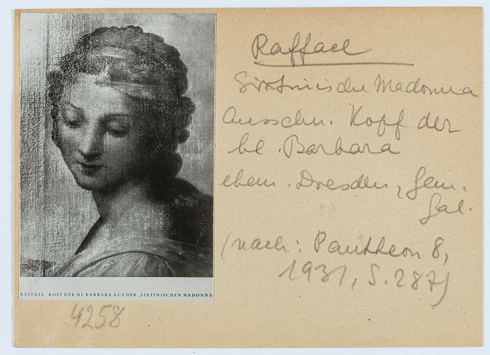 Raffael
Sixtinische Madonna
Ausschn. Kopf der
hl. Barbara
ehem. Dresden, Gem.
Gal.
(nach: Pantheon 8,
1931, S. 287)
RAFFAEL KOPF DER HL. BARBARA AUS DER „SIXTINISCHEN MADONNA
4258